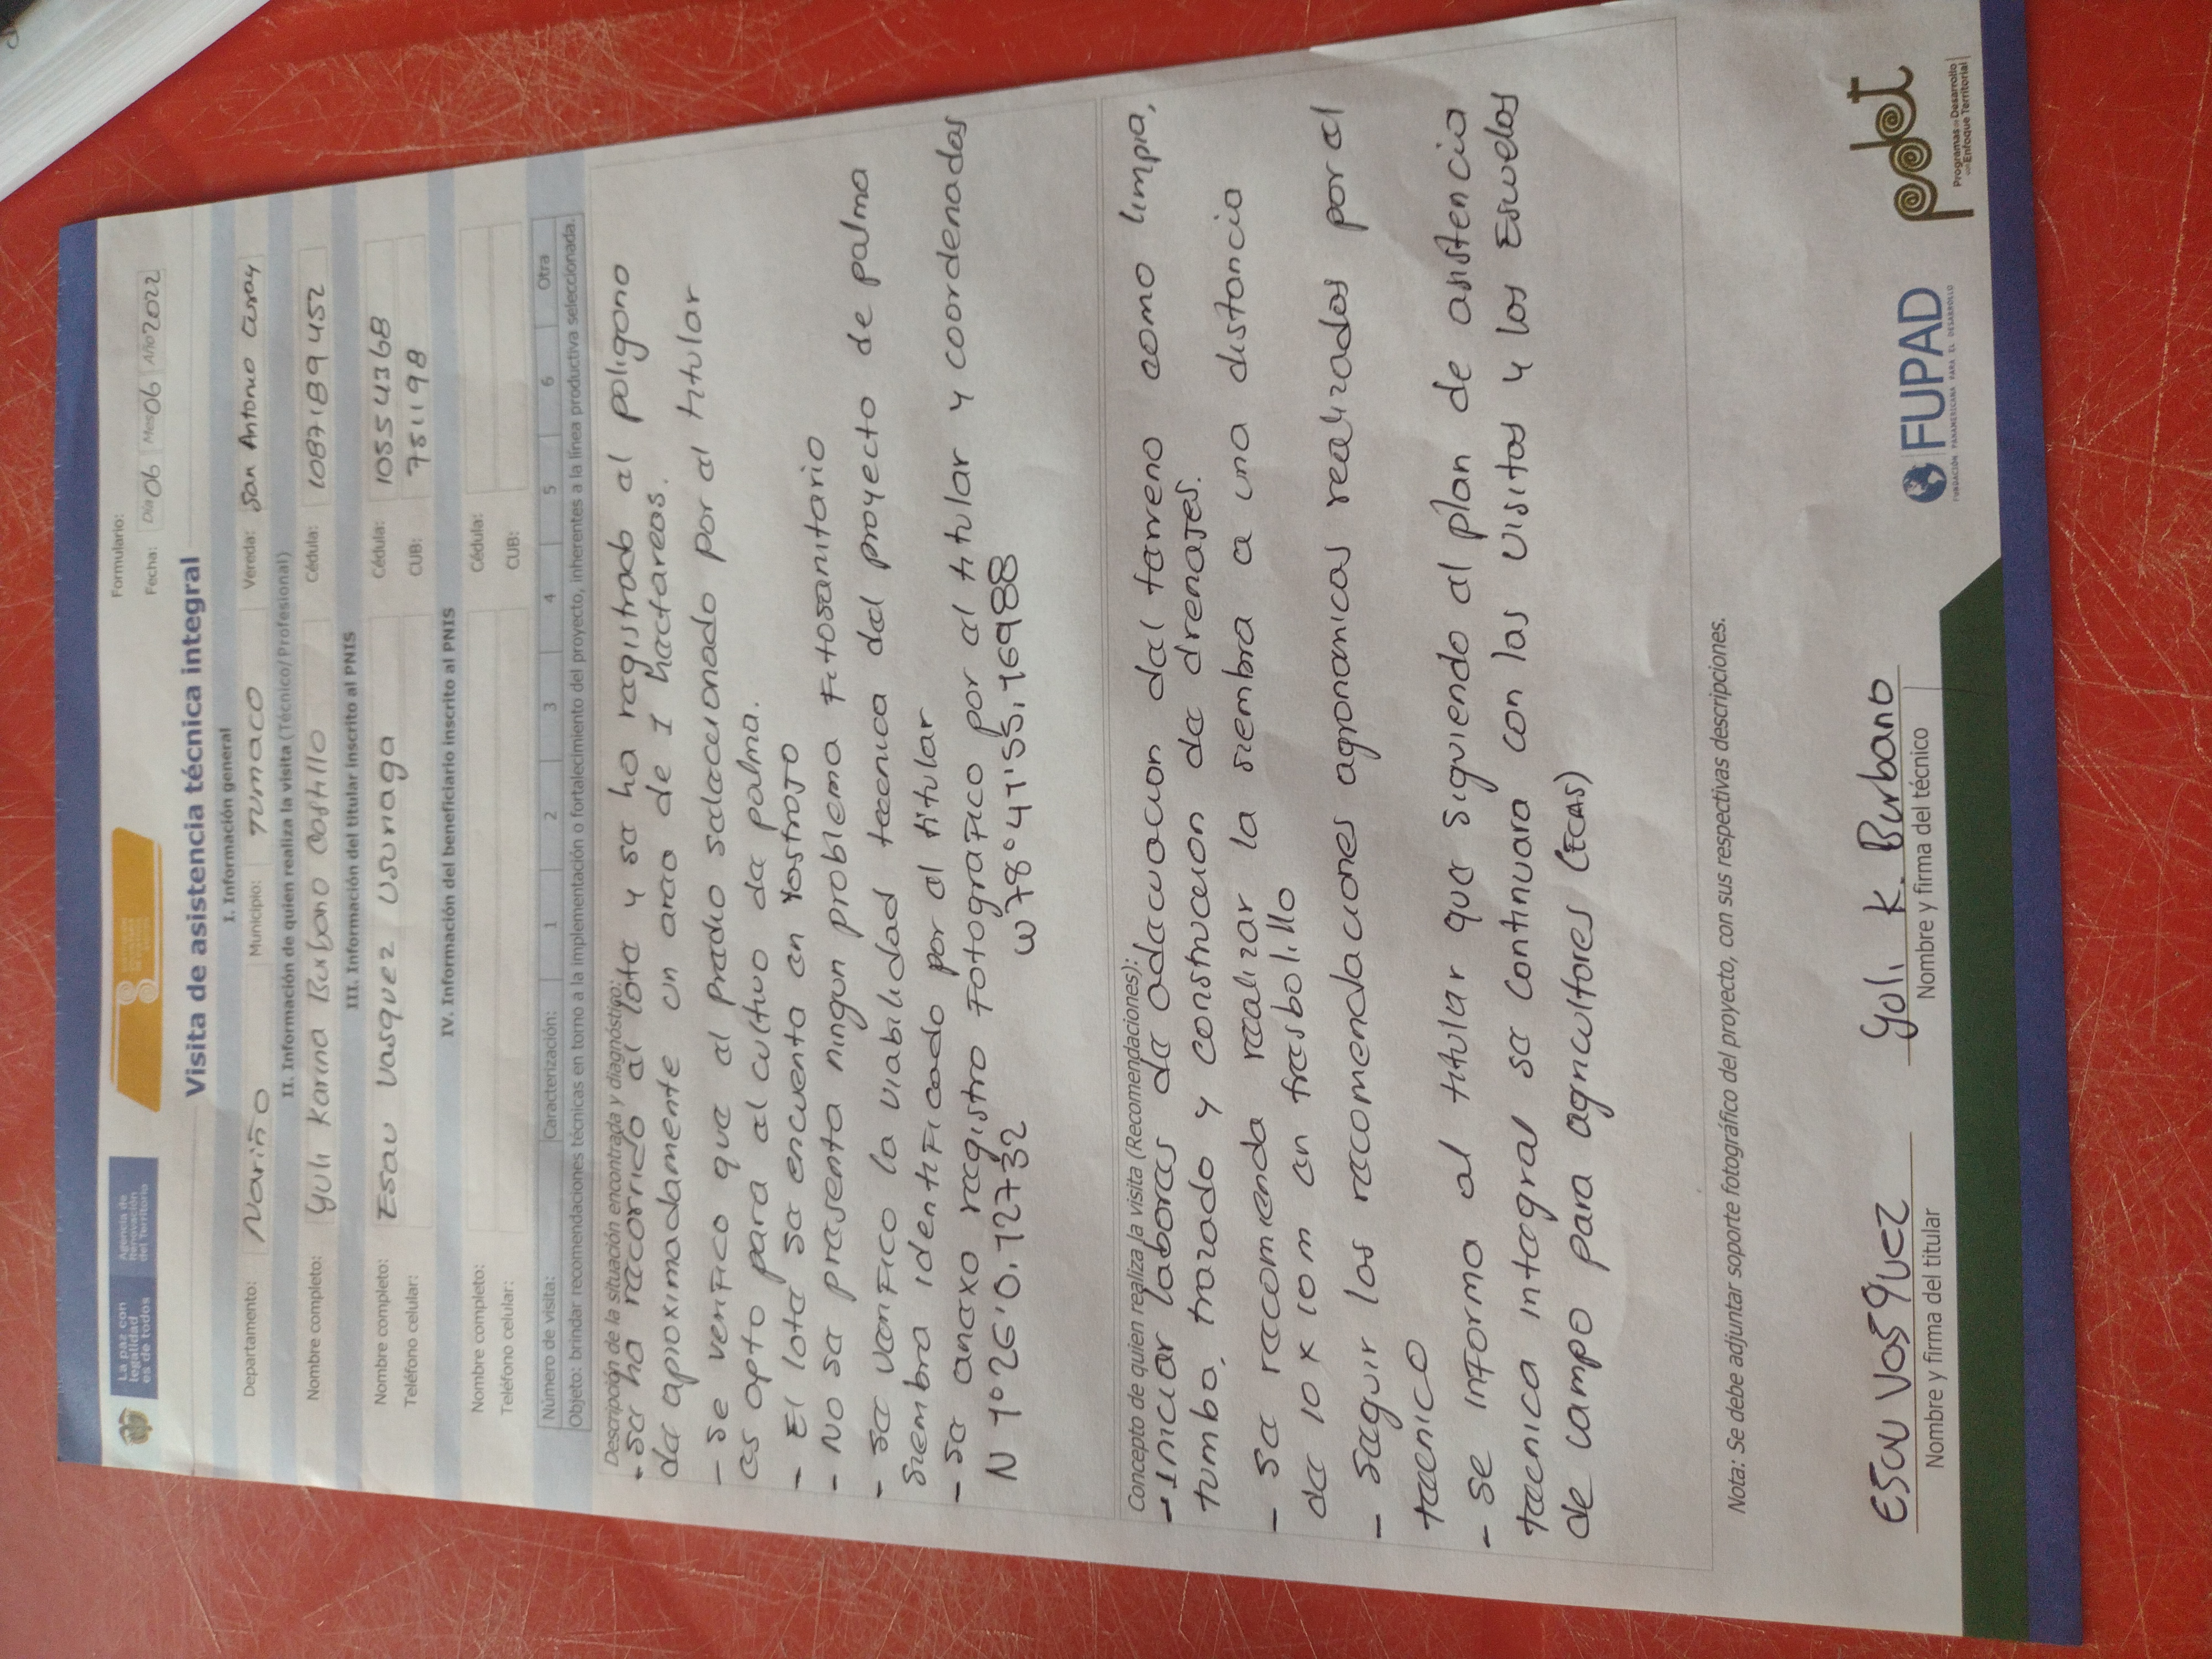 La paz con
legalidad
es de todos
Agencia de
Renovación
del Territorio
Formulario:
Fecha: Día 06 Mes 06 Año 2022
Visita de asistencia técnica integral
I. Información general
Departamento: Nariño Municipio: Tumaco Vereda: San Antonio Curay
II. Información de quien realiza la visita (Técnico/Profesional)
Nombre completo: Yuli Karina Burbano Castillo Cédula: 1087189452
III. Información del titular inscrito al PNIS
Nombre completo: Esau Vasquez Usuriaga Cédula: 10554368
Teléfono celular: CUB: 751198
IV. Información del beneficiario inscrito al PNIS
Nombre completo: Cédula:
Teléfono celular: CUB:
Número de visita: Caracterización: 1 2 3 4 5 6 Otra
Objeto: brindar recomendaciones técnicas en torno a la implementación o fortalecimiento del proyecto, inherentes a la línea productiva seleccionada.
Descripción de la situación encontrada y diagnóstico:
- se ha recorrido el lote y se ha registrado el poligono
de aproximadamente un area de 1 hactareas.
- se verifico que el predio selaccionado por el titular
es apto para el cultivo de palma.
- El lote se encuenta en rastrojo
- No se presenta ningun problema fitosanitario
- se verifico la viabilidad tecnica del proyecto de palma
siembra identificado por el titular
- se anexo registro fotografico por el titular y coordenadas
N 1°26'0.72732 W78°41'55,76988
Concepto de quien realiza la visita (Recomendaciones):
- Iniciar labores de adecuacion del terreno como limpia,
tumba, trazado y construcion de drenajes.
- se recomienda realizar la siembra a una distancia
de 10 x 10 m en tresbolillo
- seguir las recomendaciones agronomicas realizadas por el
tecnico
- se informa al titular que siguiendo el plan de asistencia
tecnica integral se continuara con las visitas y las Escuelas
de campo para agricultores (ECAS)
Nota: Se debe adjuntar soporte fotográfico del proyecto, con sus respectivas descripciones.
Esau Vasquez
Nombre y firma del titular
Yuli K. Burbano
Nombre y firma del técnico
FUPAD
FUNDACIÓN PANAMERICANA PARA EL DESARROLLO
pdet
Programas de Desarrollo
con Enfoque Territorial